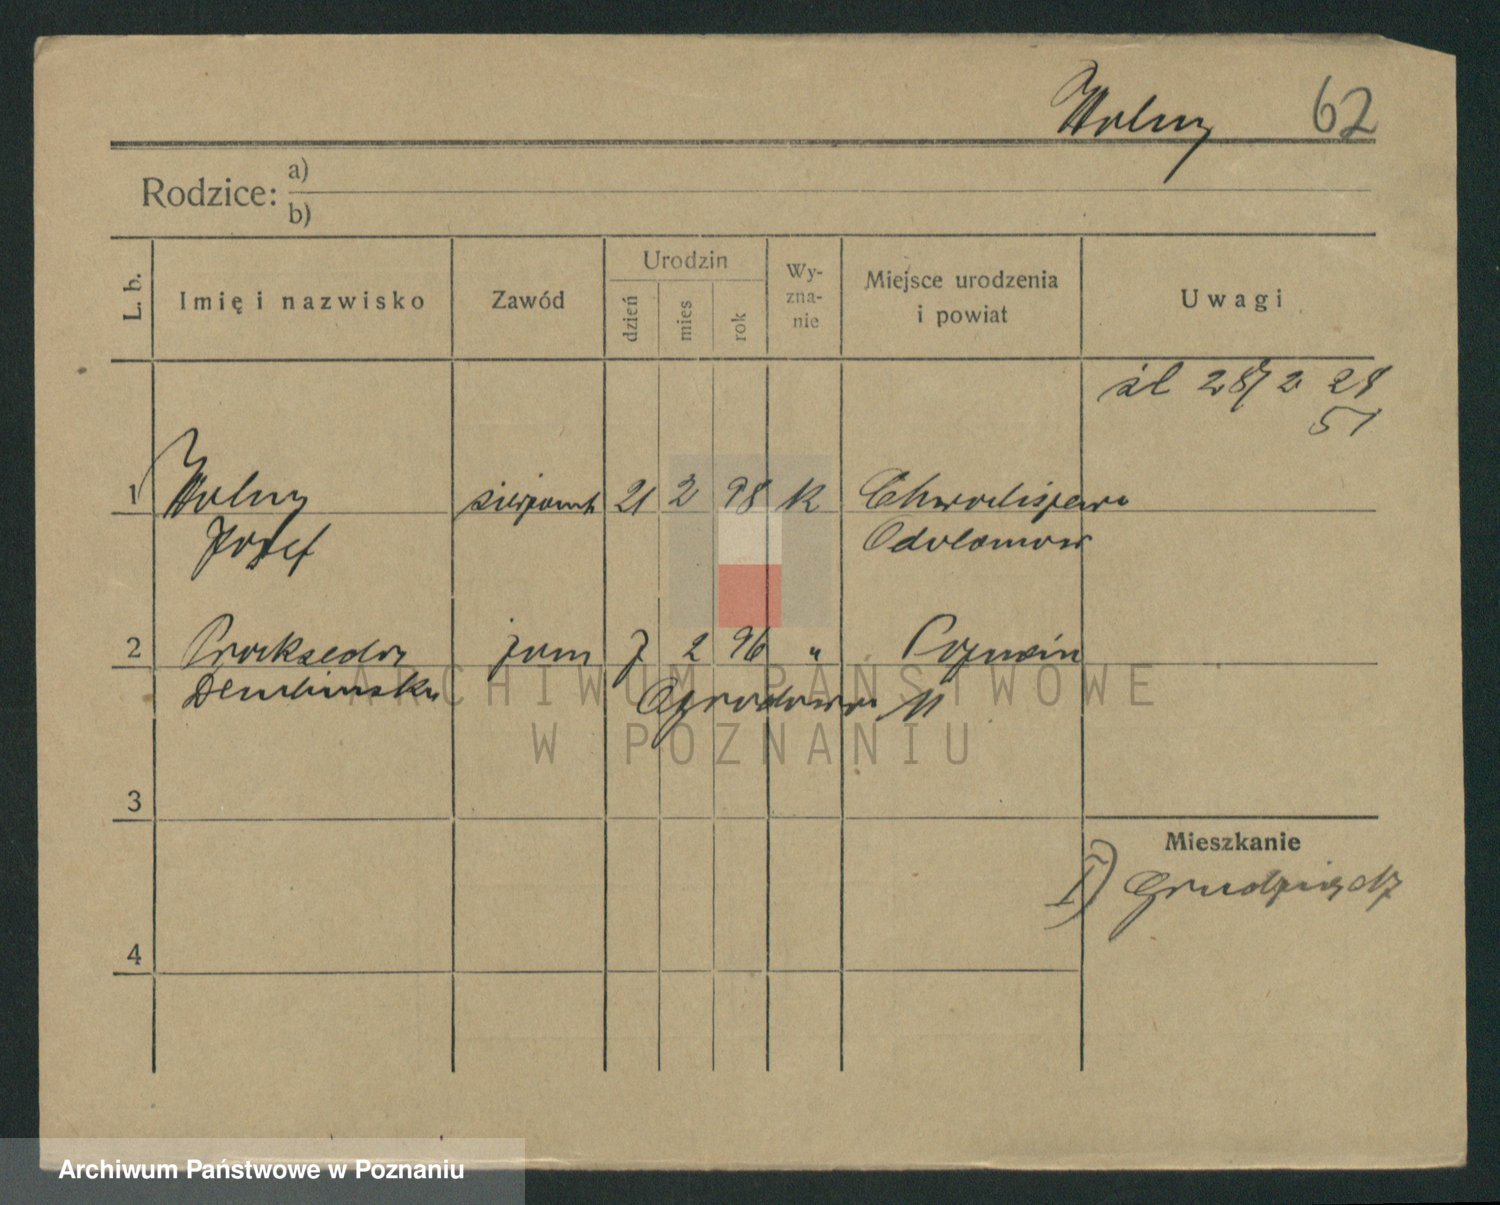 Wolny 62
Rodzice: a)
b)
L. b. Imię i nazwisko Zawód Urodzin dzień mies rok Wy-zna-nie Miejsce urodzenia i powiat Uwagi
śl 28/2 28
51
1 Wolny 21 2 98 k
Józef
2 Prakseda 7 2 96 " Poznań
Dembińska Ogrodowa 11
3
Mieszkanie
I) Grudziądz
4
ARCHIWUM PAŃSTWOWE
W POZNANIU
Archiwum Państwowe w Poznaniu